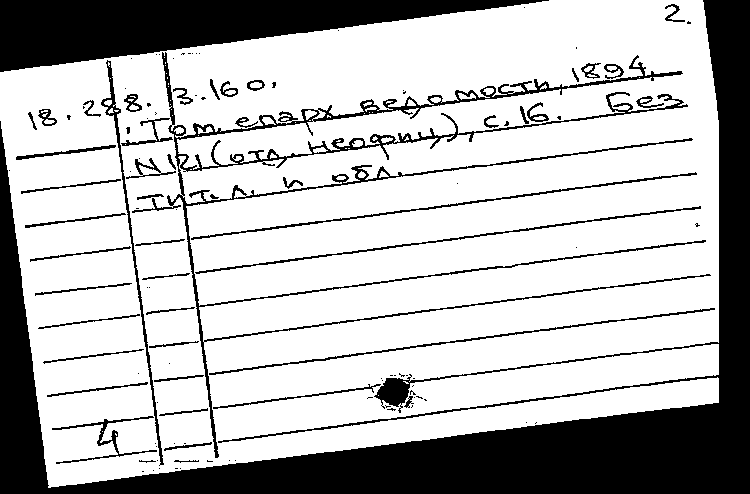 2.
18.288.3.160.
: Том. епарх ведомости, 1894,
N 21 (отд. неофиц.), с. 16. Без
тит. л. и обл.
4